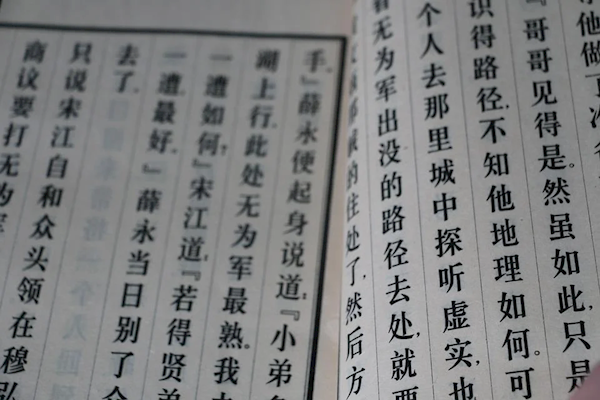 他做了
『哥哥见得是。然虽如此,只是
识得路径,不知他地理如何。可
个人去那里城中探听虚实,也
看无为军出没的路径去处,就要
的住处了,然后方
手。』薛永便起身说道:『小弟多
湖上行,此处无为军最熟。我去
一遭如何?』宋江道:『若得贤弟
一遭最好。』薛永当日别了
去了。
只说宋江自和众头领在穆弘
商议要打无为军